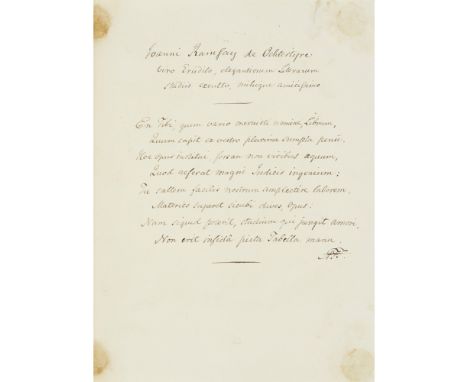 Joanni Ramsay de Ochtertyre
viro Erudito, elegantiorum Literarum
studiis exculto, mihique amicissimo
En Tibi, quem vario meruisti nomine, Librum,
Quum capit ex vestro plurima sumpta penu,
Hoc opus institui forsan non viribus æquum,
Quod deferat magni Judicis ingenium:
Tu saltem facilis nostrum amplectere laborem,
Materies superet sicubi dives, Opus:
Nam siquid poterit, studium qui jungit amori,
Non erit infida picta Tabella manu.